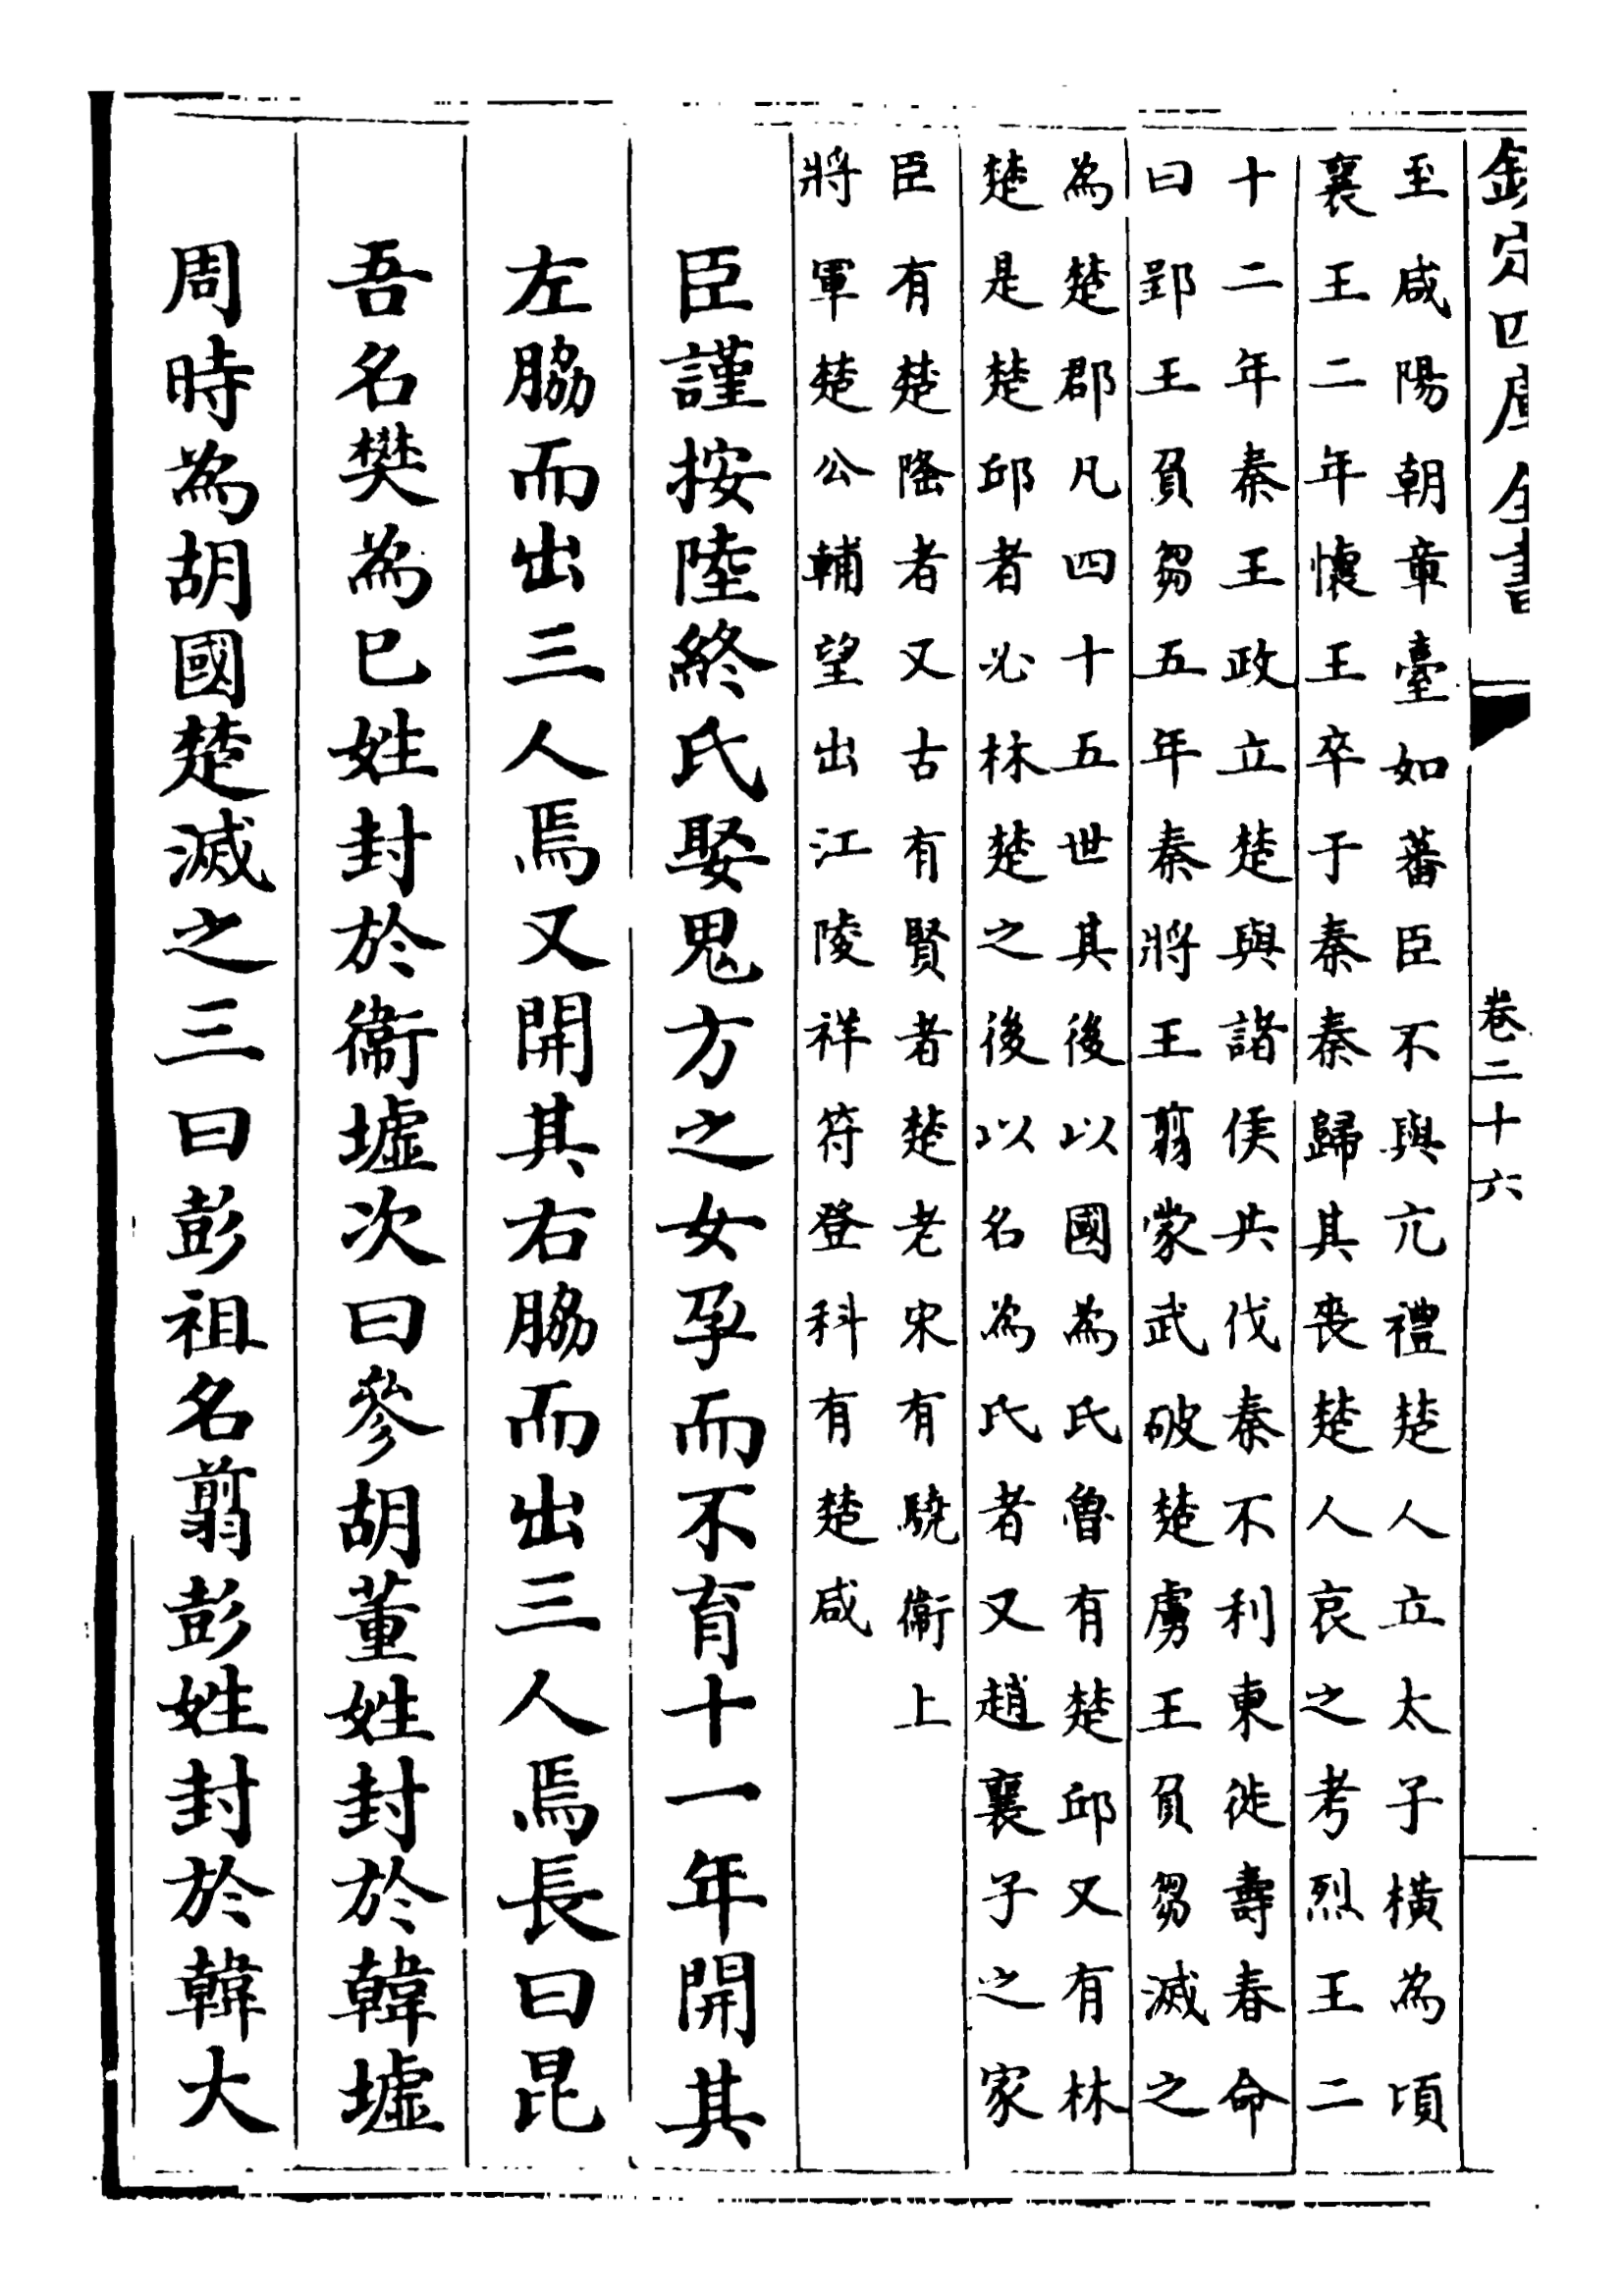 欽定四庫全書
卷二十六
至咸陽朝章臺如蕃臣不與亢禮楚人立太子橫為頃
襄王二年懷王卒于秦秦歸其喪楚人哀之考烈王二
十二年秦王政立楚與諸侯共伐秦不利東徙壽春命
曰郢王負芻五年秦將王翦蒙武破楚虜王負芻滅之
為楚郡凡四十五世其後以國為氏魯有楚邱又有林
楚是楚邱者必林楚之後以名為氏者又趙襄子之家
臣有楚隆者又古有賢者楚老宋有驍衞上
將軍楚公輔望出江陵祥符登科有楚咸
臣謹按陸終氏娶鬼方之女孕而不育十一年開其
左脇而出三人焉又開其右脇而出三人焉長曰昆
吾名樊為巳姓封於衞墟次曰參胡董姓封於韓墟
周時為胡國楚滅之三曰彭祖名翦彭姓封於韓大